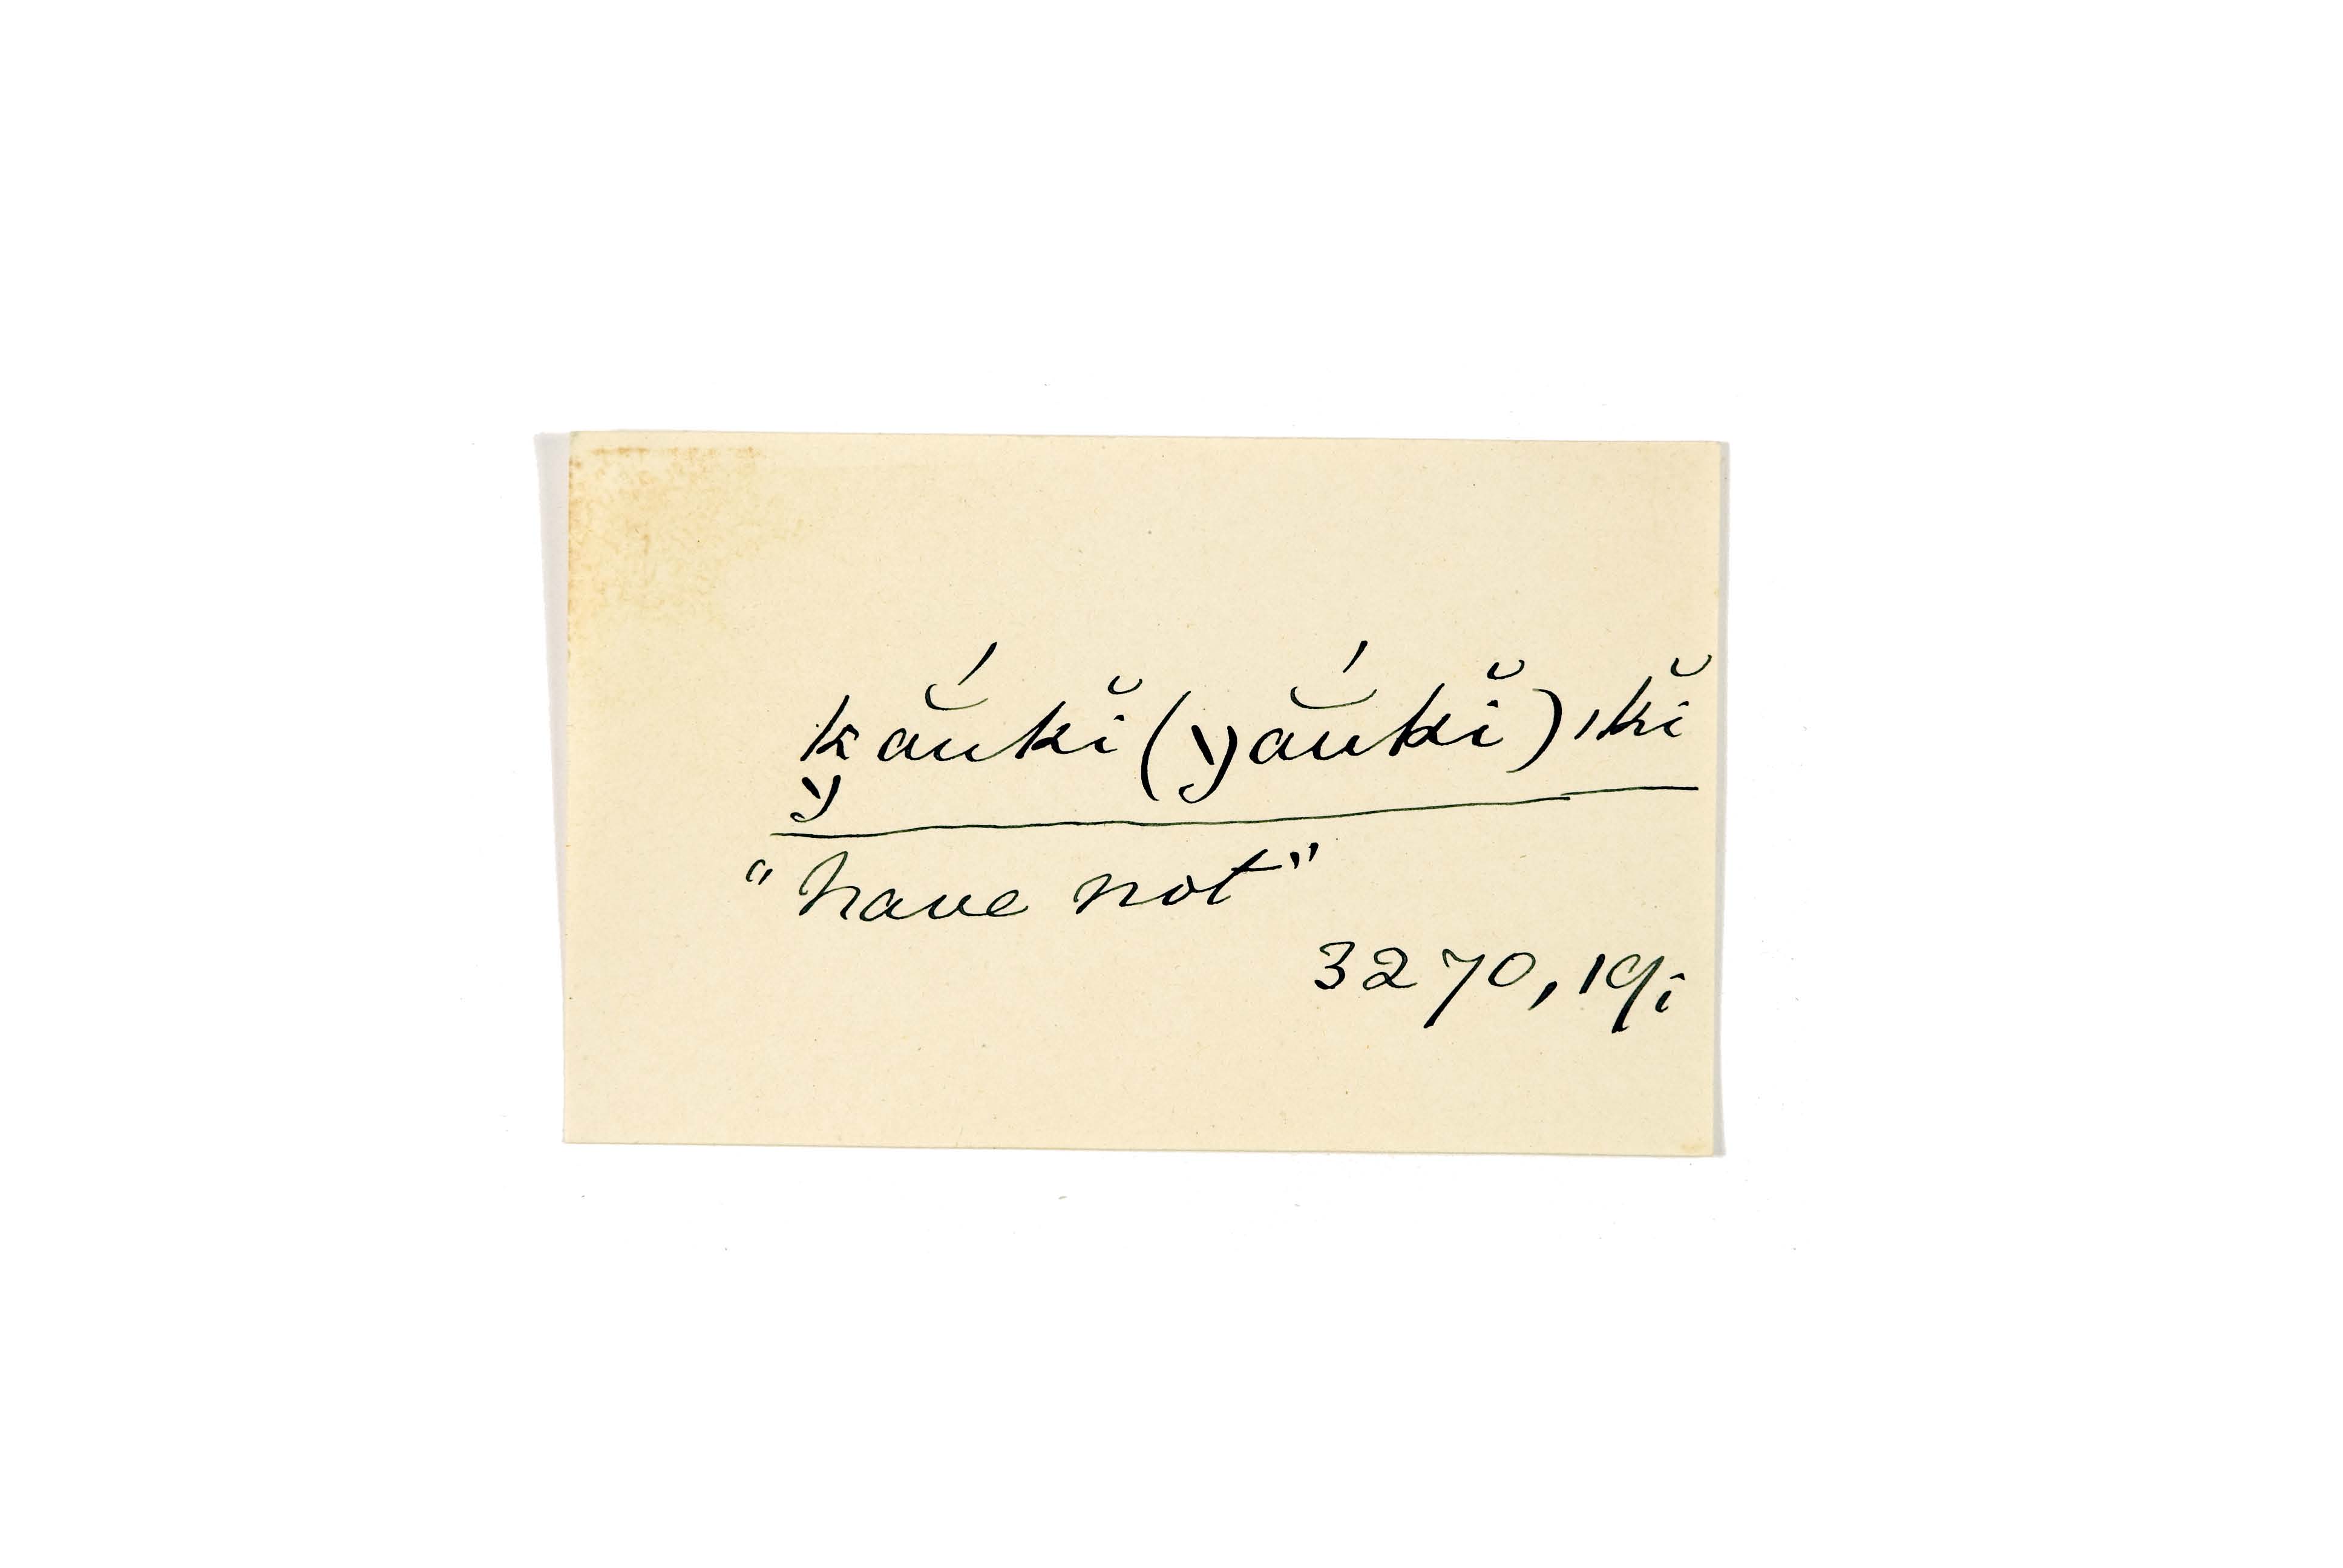 kắukĭ(yắukĭ)ıkĭ
y
"have not"
3270,19i